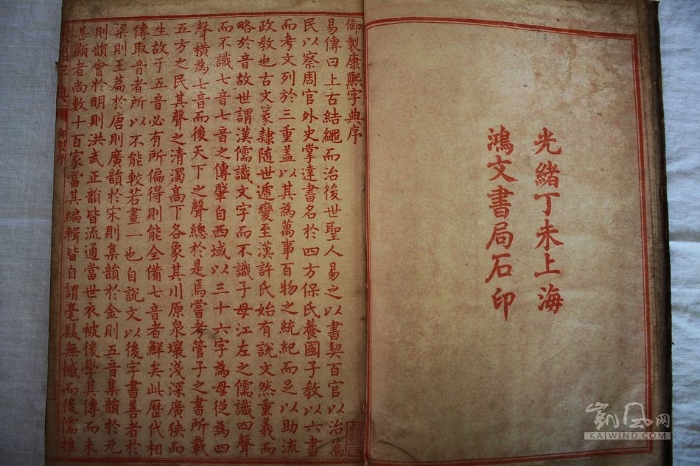 光緒丁未上海
鴻文書局石印
御製康熙字典序
易傳曰上古結繩而治後世聖人易之以書契百官以治萬
民以察周官外史掌達書名於四方保氏養國子教以六書
而考文列於三重蓋以其為萬事百物之統紀而足以助流
政教也古文篆隸隨世遞變至漢許氏始有說文然重義而
略於音故世謂漢儒識文字而不識子母江左之儒識四聲
而不識七音七音之傳肇自西域以三十六字為母從為四
聲橫為七音而後天下之聲總於是焉嘗考管子之書所載
五方之民其聲之清濁高下各象其川原泉壤淺深廣狹而
生故于五音必有所偏得則能全備七音者鮮矣此歷代相
傳取音者所以不能較若畫一也自說文以後字書善者於
梁則玉篇於唐則廣韻於宋則集韻於金則五音集韻於元
則韻會於明則洪武正韻皆流通當世衣被後學其傳而未
甚顯者尚數十百家當其編輯皆自謂毫髮無憾而後儒推
字典 御製序
KAIWING.COM